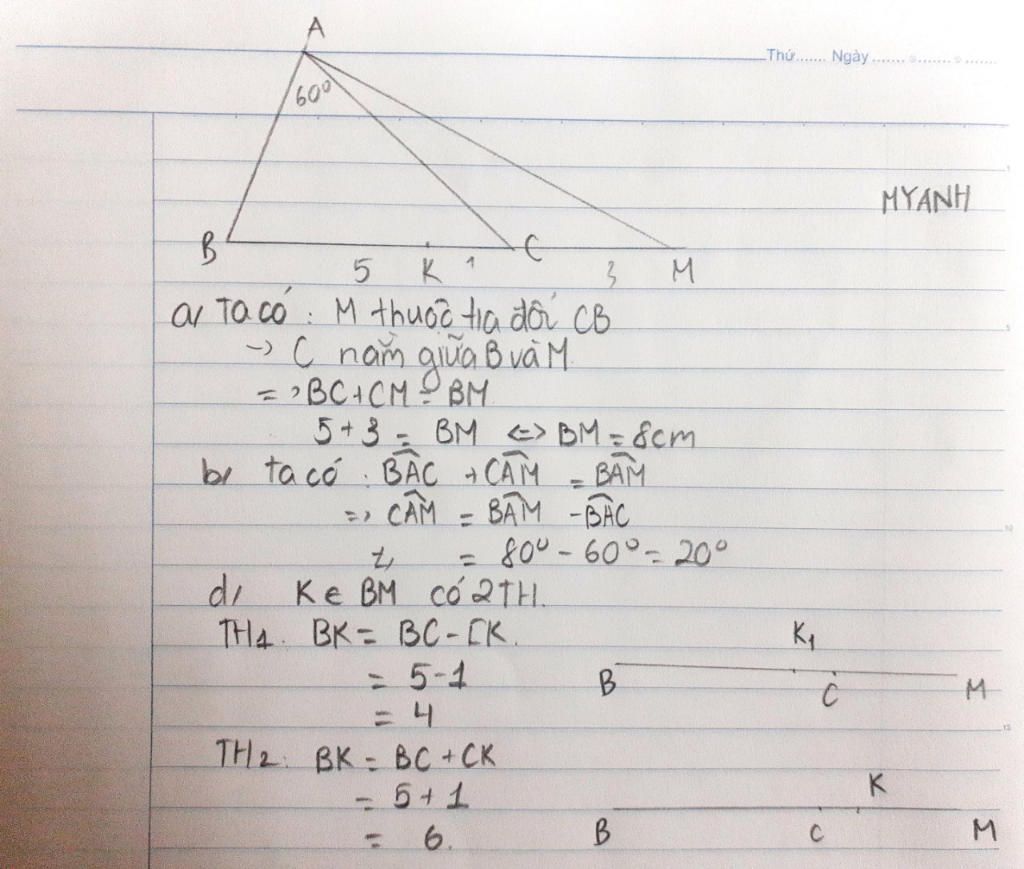 A
Thứ....... Ngày.......
60°
MYANH
B
C
5 K 1 3 M
a/ Ta có : M thuộc tia đối CB
-> C nằm giữa B và M.
=> BC + CM = BM
5 + 3 = BM <=> BM = 8cm
b/ ta có : BÂC + CÂM = BÂM
=> CÂM = BÂM - BÂC
= 80° - 60° = 20°
d/ K e BM có 2TH.
TH1. BK = BC - CK.
K1
= 5-1
B C M
= 4
TH2: BK = BC + CK
K
= 5 + 1
= 6.
B C M